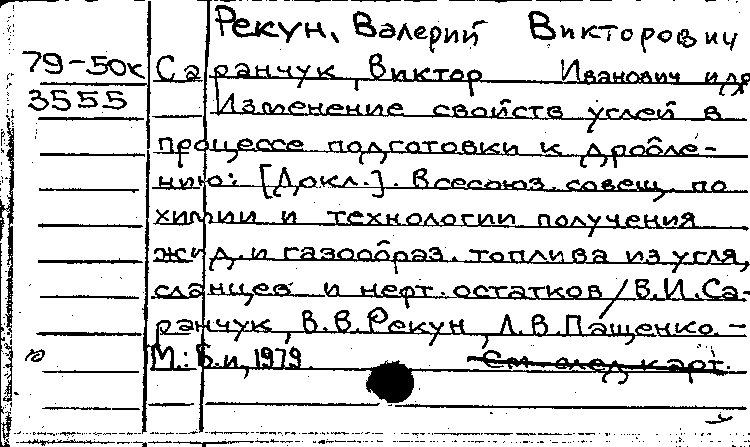 Рекун, Валерий Викторович
79-50к Саранчук, Виктор Иванович и др
3555 Изменение свойств углей в
процессе подготовки к дробле-
нию: [Докл.]. Всесоюз. совещ. по
химии и технологии получения
жид. и газообраз. топлива из угля,
сланцев и нефт. остатков / В.И. Са-
ранчук, В.В. Рекун, Л.В. Пащенко. -
М.: Б.и, 1979. См след карт.